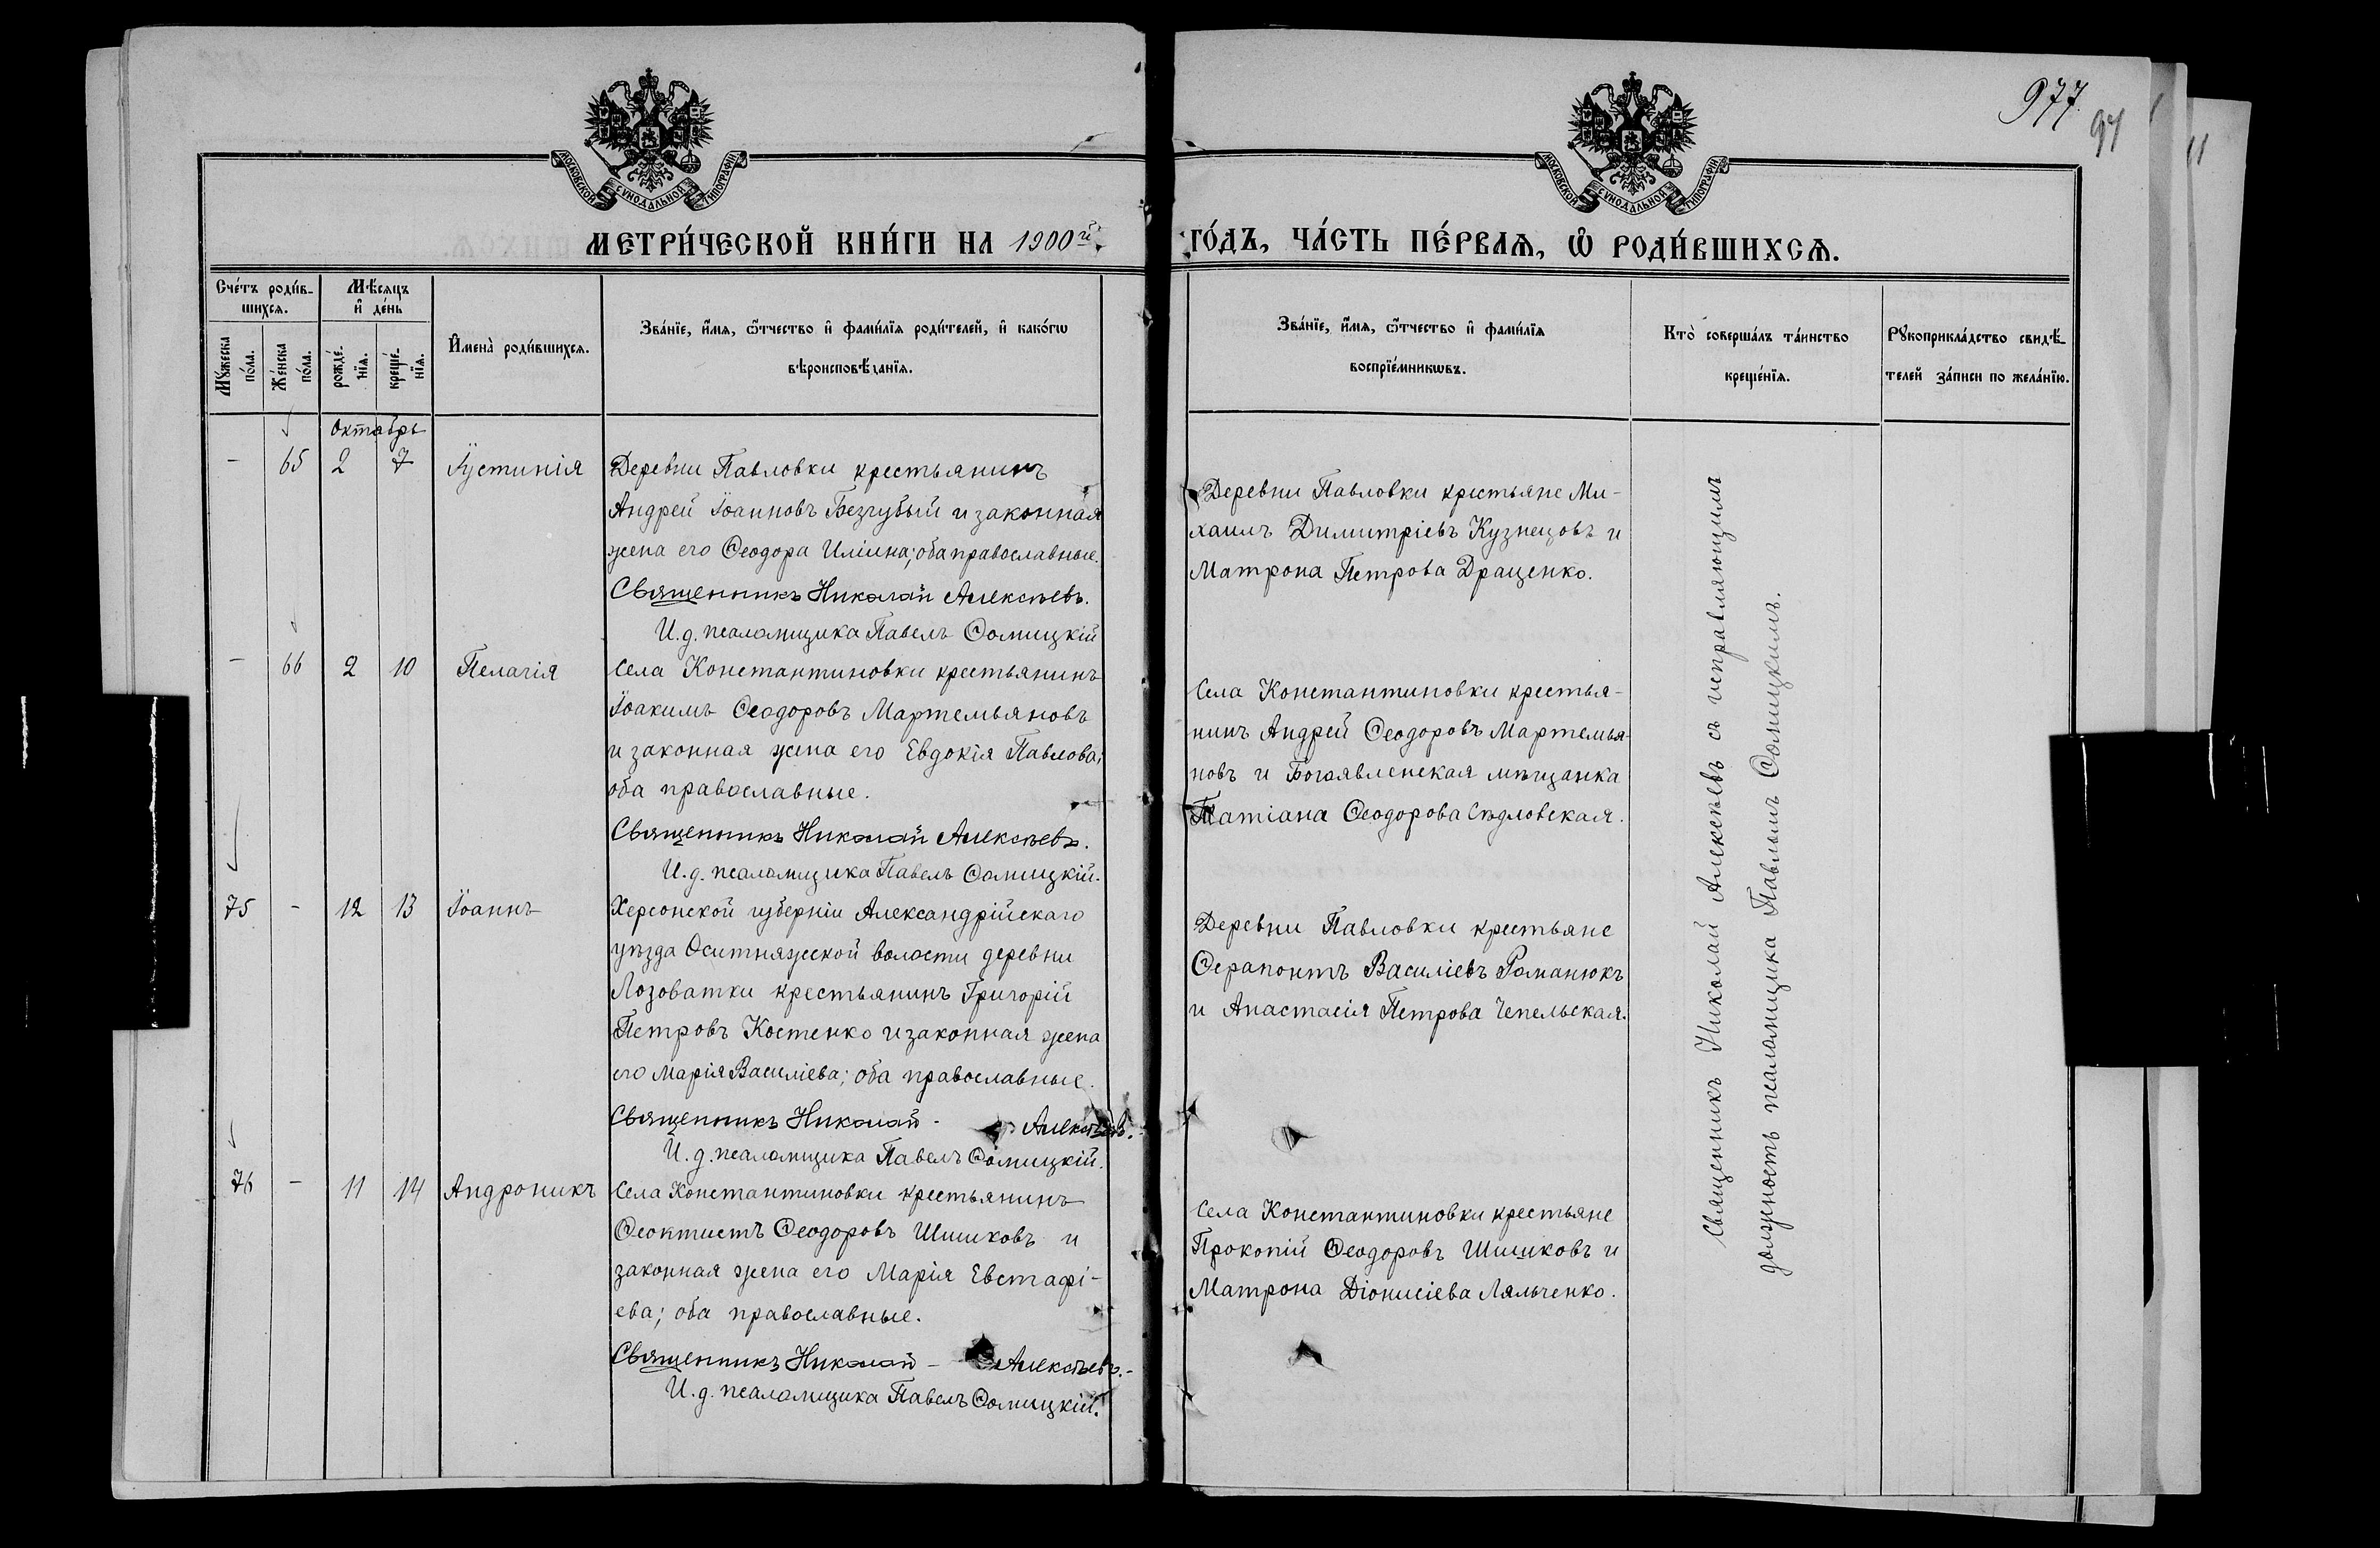 977
97
МОСКОВСКОЙ СѴНОДАЛЬНОЙ ТИПОГРАФІИ
МОСКОВСКОЙ СѴНОДАЛЬНОЙ ТИПОГРАФІИ
МЕТРИ́ЧЕСКОЙ КНИ́ГИ НА 1900й
ГО́ДЪ, ЧА́СТЬ ПЕ́РВАѦ, Ѡ РОДИ́ВШИХСѦ.
Сче́тъ роди́в-
шихсѧ.
Мꙋ́жеска
по́ла.
Же́нска
по́ла.
Мѣ́сѧцъ
и҆ де́нь
рожде́-
нїѧ.
креще́-
нїѧ.
И҆мена̀ роди́вшихсѧ.
Зва́нїе, и҆́мѧ, ѻ҆́тчество и҆ фами́лїѧ роди́телей, и҆ како́гѡ
вѣроисповѣ́данїѧ.
Зва́нїе, и҆́мѧ, ѻ҆́тчество и҆ фами́лїѧ
воспрїе́мникѡвъ.
Кто̀ соверша́лъ та́инство
креще́нїѧ.
Рꙋкоприкла́дство свидѣ́-
телей за́писи по жела́нїю.
Октабрь
- 65 2 7 Іустинія
Деревни Павловки крестьянинъ
Андрей Іоанновъ Беззубый и законная
жена его Ѳеодора Иліина; оба православные.
Священникъ Николай Алексѣевъ.
И. д. псаломщика Павелъ Ѳомицкій
Деревни Павловки крестьяне Ми-
хаилъ Димитріевъ Кузнецовъ и
Матрона Петрова Драценко.
- 66 2 10 Пелагія
Села Константиновки крестьянинъ
Іоакимъ Ѳеодоровъ Мартемьяновъ
и законная жена его Евдокія Павлова;
оба православные.
Священникъ Николай Алексѣевъ.
И. д. псаломщика Павелъ Ѳомицкій.
Села Константиновки крестья-
нинъ Андрей Ѳеодоровъ Мартемья-
новъ и Богоявленская мѣщанка
Татіана Ѳеодорова Сѣдловская.
75 - 12 13 Іоаннъ
Херсонской губерніи Александрійскаго
уѣзда Оситняжской волости деревни
Лозоватки крестьянинъ Григорій
Петровъ Костенко и законная жена
его Марія Василіева; оба православные.
Священникъ Николай - Алексѣевъ.
И. д. псаломщика Павелъ Ѳомицкій.
Деревни Павловки крестьяне
Ѳерапонтъ Василіевъ Романюкъ
и Анастасія Петрова Чепельская.
76 - 11 14 Андроникъ
Села Константиновки крестьянинъ
Ѳеоктистъ Ѳеодоровъ Шишковъ и
законная жена его Марія Евстафі-
ева; оба православные.
Священникъ Николай - Алексѣевъ.-
И. д. псаломщика Павелъ Ѳомицкій.
Села Константиновки крестьяне
Прокопій Ѳеодоровъ Шишковъ и
Матрона Діонисіева Ляльченко.
Священникъ Николай Алексѣевъ съ исправляющимъ
должность псаломщика Павломъ Ѳомицкимъ.